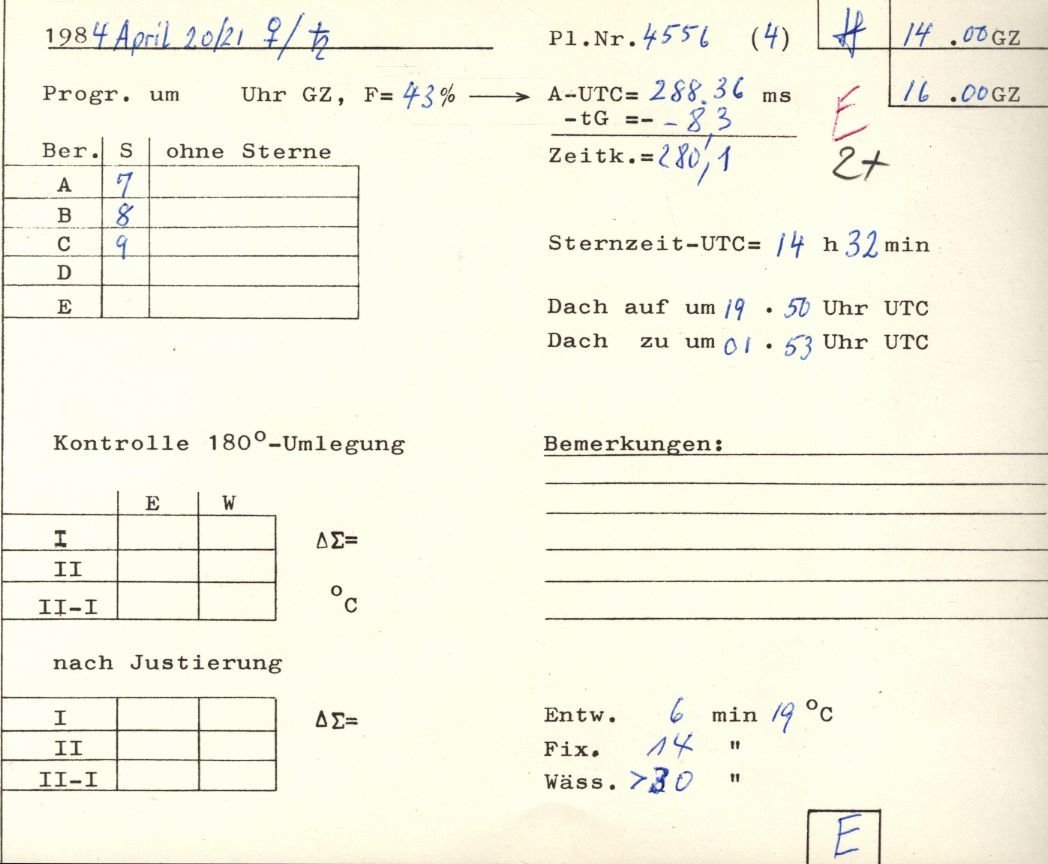 1984 April 20/21 ♀/♄ Pl.Nr. 4556 (4) # 14 .00 GZ
Progr. um Uhr GZ, F= 43% → A-UTC= 288.36 ms 16 .00 GZ
-tG =- -8,3 E
Ber. S ohne Sterne Zeitk.= 280,1 2+
A 7
B 8
C 9 Sternzeit-UTC= 14 h 32 min
D
E Dach auf um 19 . 50 Uhr UTC
Dach zu um 01 . 53 Uhr UTC
Kontrolle 180°-Umlegung Bemerkungen:
E W
I ΔΣ=
II
II-I °C
nach Justierung
I ΔΣ= Entw. 6 min 19 °C
II Fix. 14 "
II-I Wäss. >30 "
E